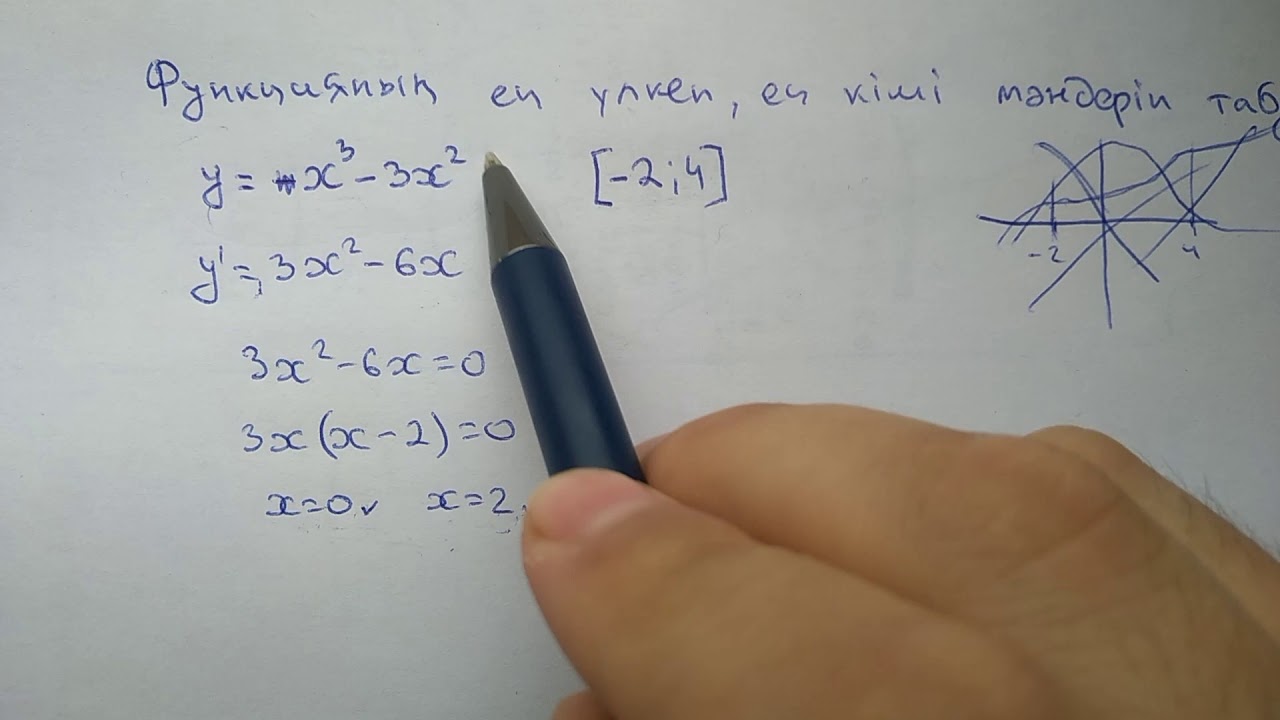 Функцияның ең үлкен, ең кіші мәндерін таб
y = x³ - 3x² [-2; 4]
y' = 3x² - 6x
3x² - 6x = 0
3x(x - 2) = 0
x = 0 ✓ x = 2
-2 4